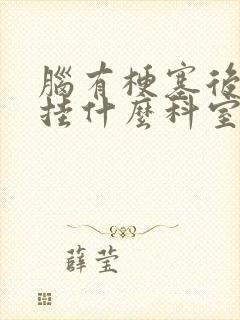 腦有梗塞後
挂什麽科室
薛莹